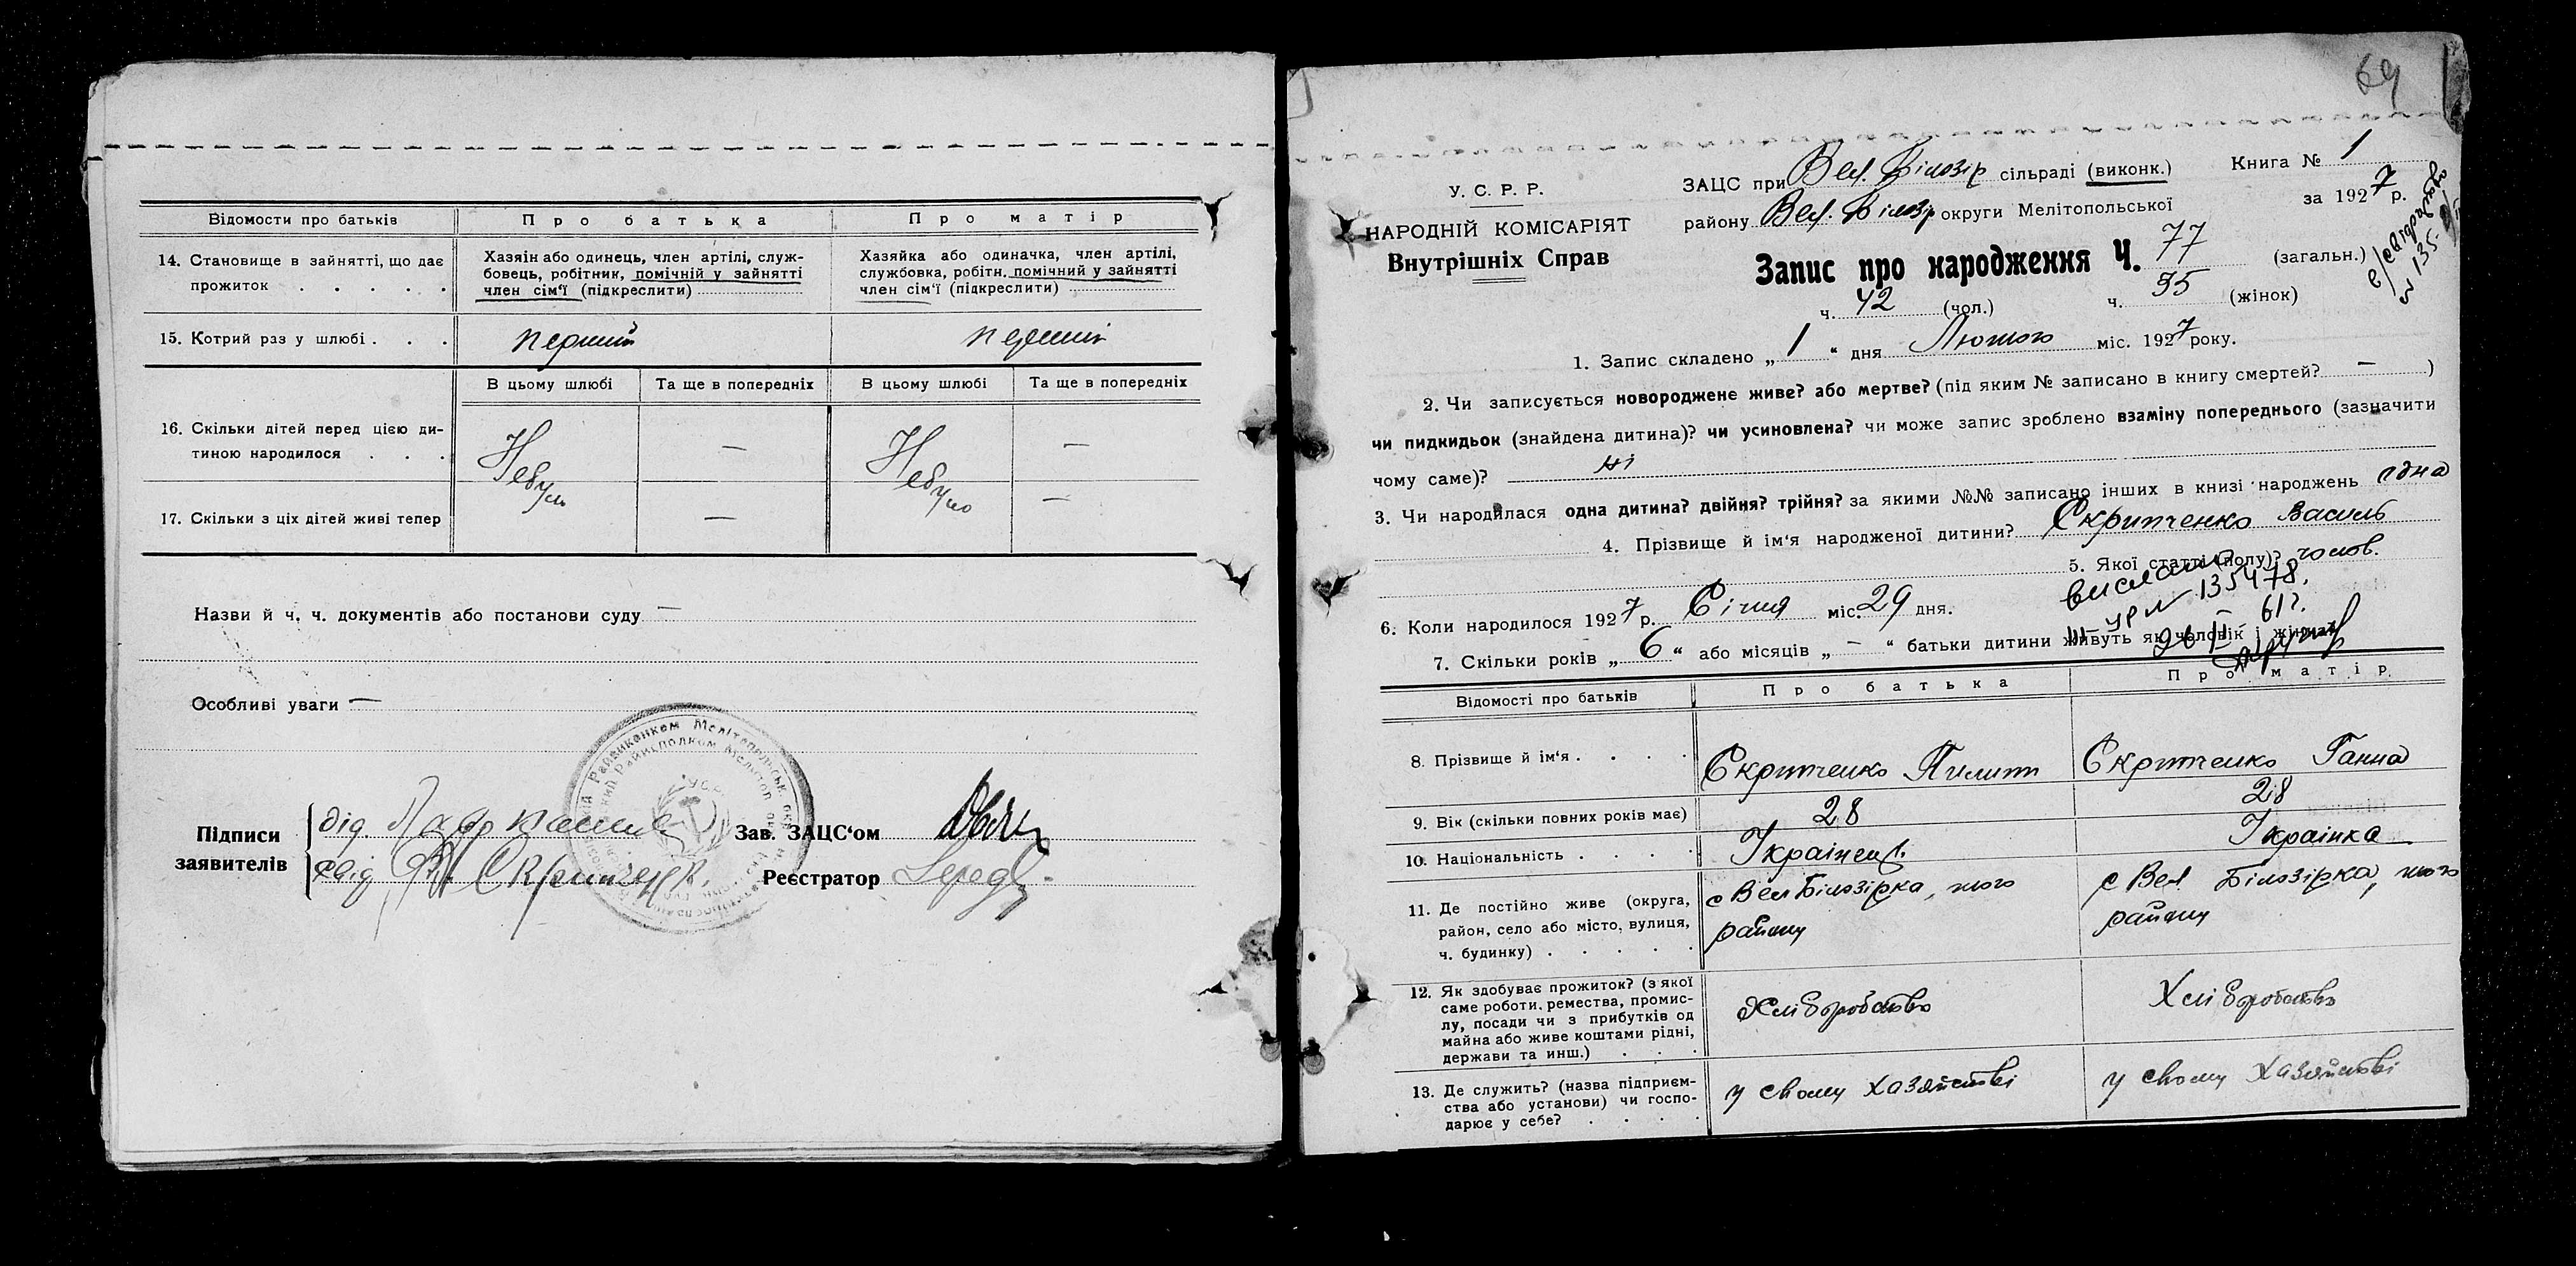 Відомости про батьків
Про батька
Про матір
14. Становище в зайнятті, що дає прожиток . . . . .
Хазяїн або одинець, член артілі, служ-
бовець, робітник, помічній у зайнятті
член сім'ї (підкреслити)
Хазяйка або одиначка, член артілі,
службовка, робітн. помічний у зайнятті
член сім'ї (підкреслити)
15. Котрий раз у шлюбі . . .
перший
перший
В цьому шлюбі
Та ще в попередніх
В цьому шлюбі
Та ще в попередніх
16. Скільки дітей перед цією ди-
тиною народилося . . .
Небуло
—
Небуло
—
17. Скільки з ціх дітей живі тепер
—
—
Назви й ч. ч. документів або постанови суду —
Особливі уваги —
Підписи
заявителів
Зав. ЗАЦС'ом
Скрипченк
Реєстратор
69
У. С. Р. Р.
НАРОДНІЙ КОМІСАРІЯТ
Внутрішніх Справ
ЗАЦС при Вел. Білозір сільраді (виконк.)
Книга № 1
району Вел. Білозір округи Мелітопольської
за 1927 р.
Запис про народження Ч. 77 (загальн.)
ч. 42 (чол.) ч. 35 (жінок)
1. Запис складено „ 1 “ дня Лютого міс. 1927 року.
2. Чи записується новороджене живе? або мертве? (під яким № записано в книгу смертей? — )
чи пидкидьок (знайдена дитина)? чи усиновлена? чи може запис зроблено взаміну попереднього (зазначити
чому саме)? ні
3. Чи народилася одна дитина? двійня? трійня? за якими №№ записано інших в книзі народжень одна
4. Прізвище й ім'я народженої дитини? Скрипченко Василь
5. Якої статті (полу)? чолов.
6. Коли народилося 1927 р. Січня міс. 29 дня.
7. Скільки років „ 6 “ або місяців „ — “ батьки дитини живуть як чоловік і жінка?
135478.
61 г.
Відомості про батьків
Про батька
Про матір
8. Прізвище й ім'я . . . .
Скрипченко Пилип
Скрипченко Ганна
9. Вік (скільки повних років має)
28
28
10. Національність . . . .
Українец.
Українка
11. Де постійно живе (округа,
район, село або місто, вулиця,
ч. будинку) . . . . .
с Вел Білозірка, того
району
с Вел. Білозірка, того
району
12. Як здобуває прожиток? (з якої
саме роботи, ремества, промис-
лу, посади чи з прибутків од
майна або живе коштами рідні,
держави та инш.) . . .
Хліборобство
Хліборобство
13. Де служить? (назва підприєм-
ства або установи) чи госпо-
дарює у себе? . . . .
у свому хазяйстві
у свому хазяйстві